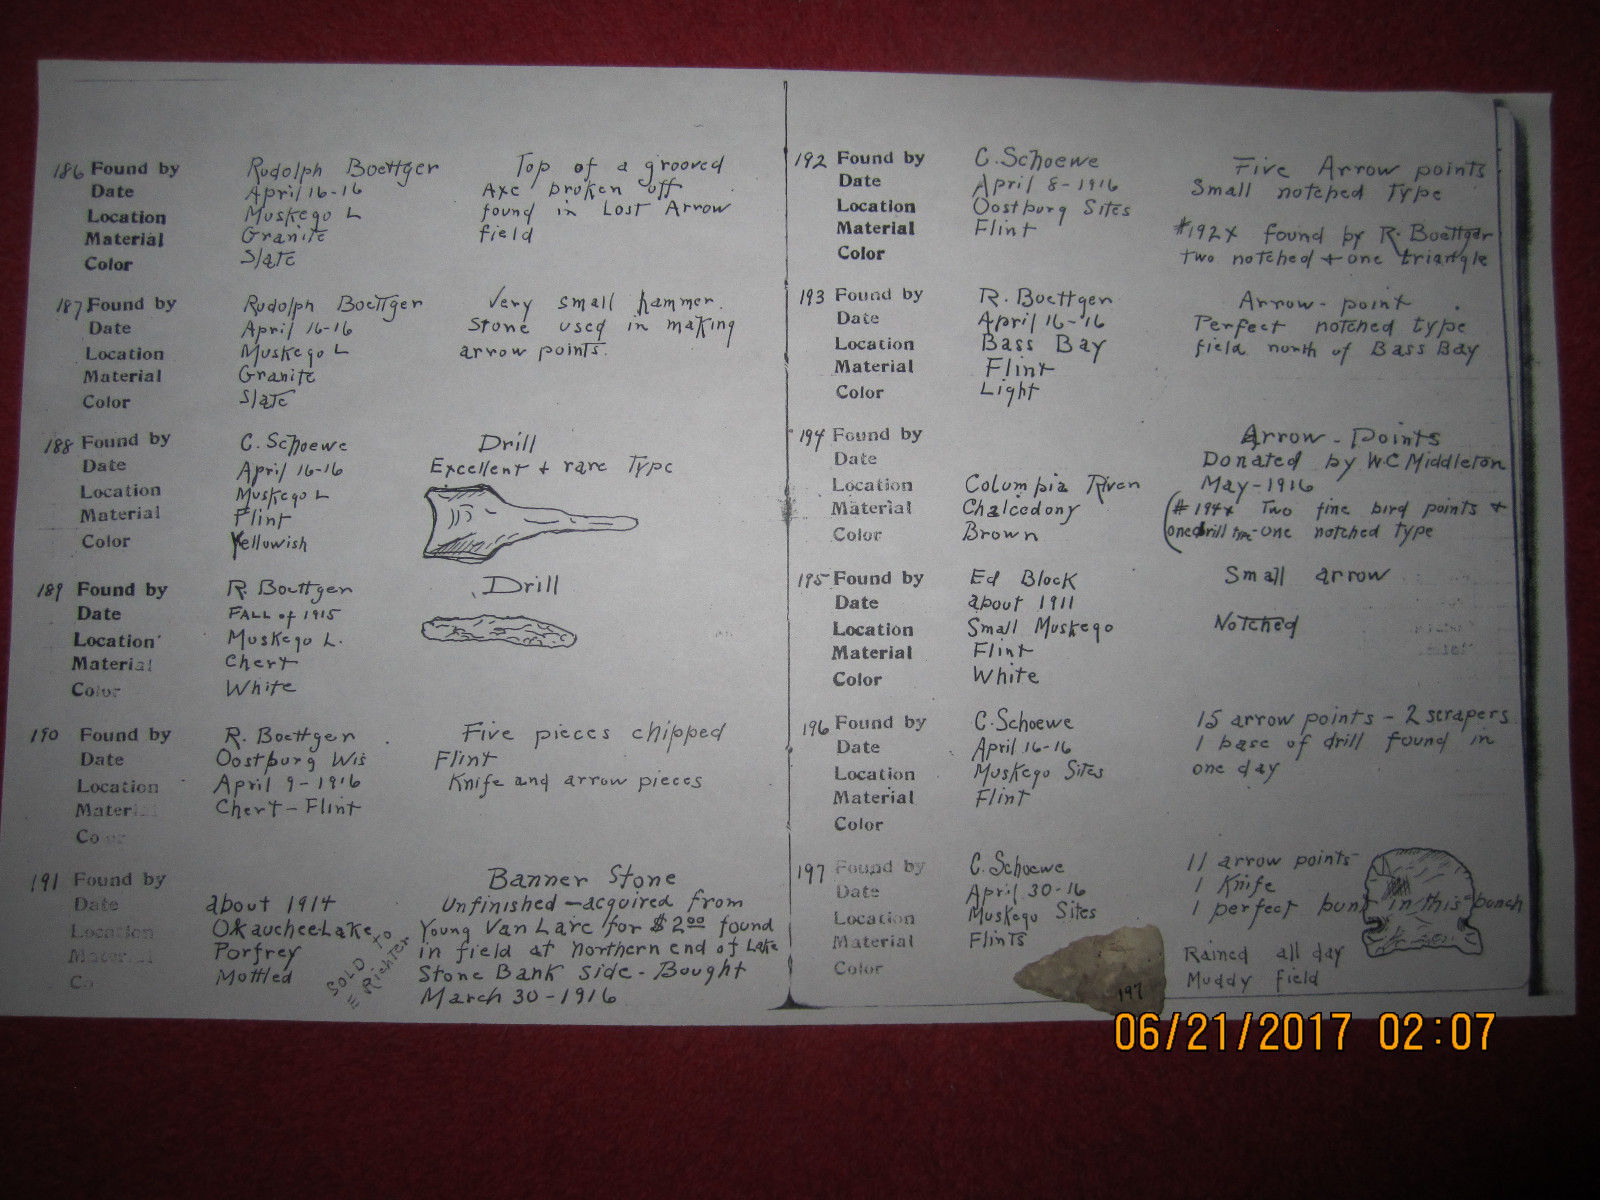 186 Found by Rudolph Boettger Top of a grooved
Date April 16-16 Axe broken off
Location Muskego L found in Lost Arrow
Material Granite field
Color Slate
187 Found by Rudolph Boettger Very small hammer
Date April 16-16 Stone used in making
Location Muskego L arrow points.
Material Granite
Color Slate
188 Found by C. Schoewe Drill
Date April 16-16 Excellent + rare Type
Location Muskego L
Material Flint
Color Yellowish
189 Found by R. Boettger Drill
Date FALL of 1915
Location Muskego L.
Material Chert
Color White
190 Found by R. Boettger Five pieces chipped
Date Oostburg Wis Flint
Location April 9-1916 Knife and arrow pieces
Material Chert-Flint
Color
191 Found by Banner Stone
Date about 1914 Unfinished-acquired from
Location Okauchee-Lake Young Van Lare for $2.00 found
Material Porfrey in field at northern end of Lake
Co Mottled Stone Bank side-Bought
March 30-1916
SOLD to
Richter
192 Found by C. Schoewe Five Arrow points
Date April 8-1916 Small notched Type
Location Oostburg Sites
Material Flint #192x found by R. Boettger
Color two notched + one triangle
193 Found by R. Boettger Arrow-point
Date April 16-'16 Perfect notched type
Location Bass Bay field north of Bass Bay
Material Flint
Color Light
194 Found by Arrow-Points
Date Donated by W.C Middleton
Location Columbia River May-1916
Material Chalcedony (#194x Two fine bird points +
Color Brown one drill type-one notched type
195 Found by Ed Block Small arrow
Date about 1911
Location Small Muskego Notched
Material Flint
Color White
196 Found by C. Schoewe 15 arrow points-2 scrapers
Date April 16-16 1 base of drill found in
Location Muskego Sites one day
Material Flint
Color
197 Found by C. Schoewe 11 arrow points
Date April 30-16 1 Knife
Location Muskego Sites 1 perfect bunt in this bunch
Material Flints Rained all day
Color Muddy field
197
06/21/2017 02:07